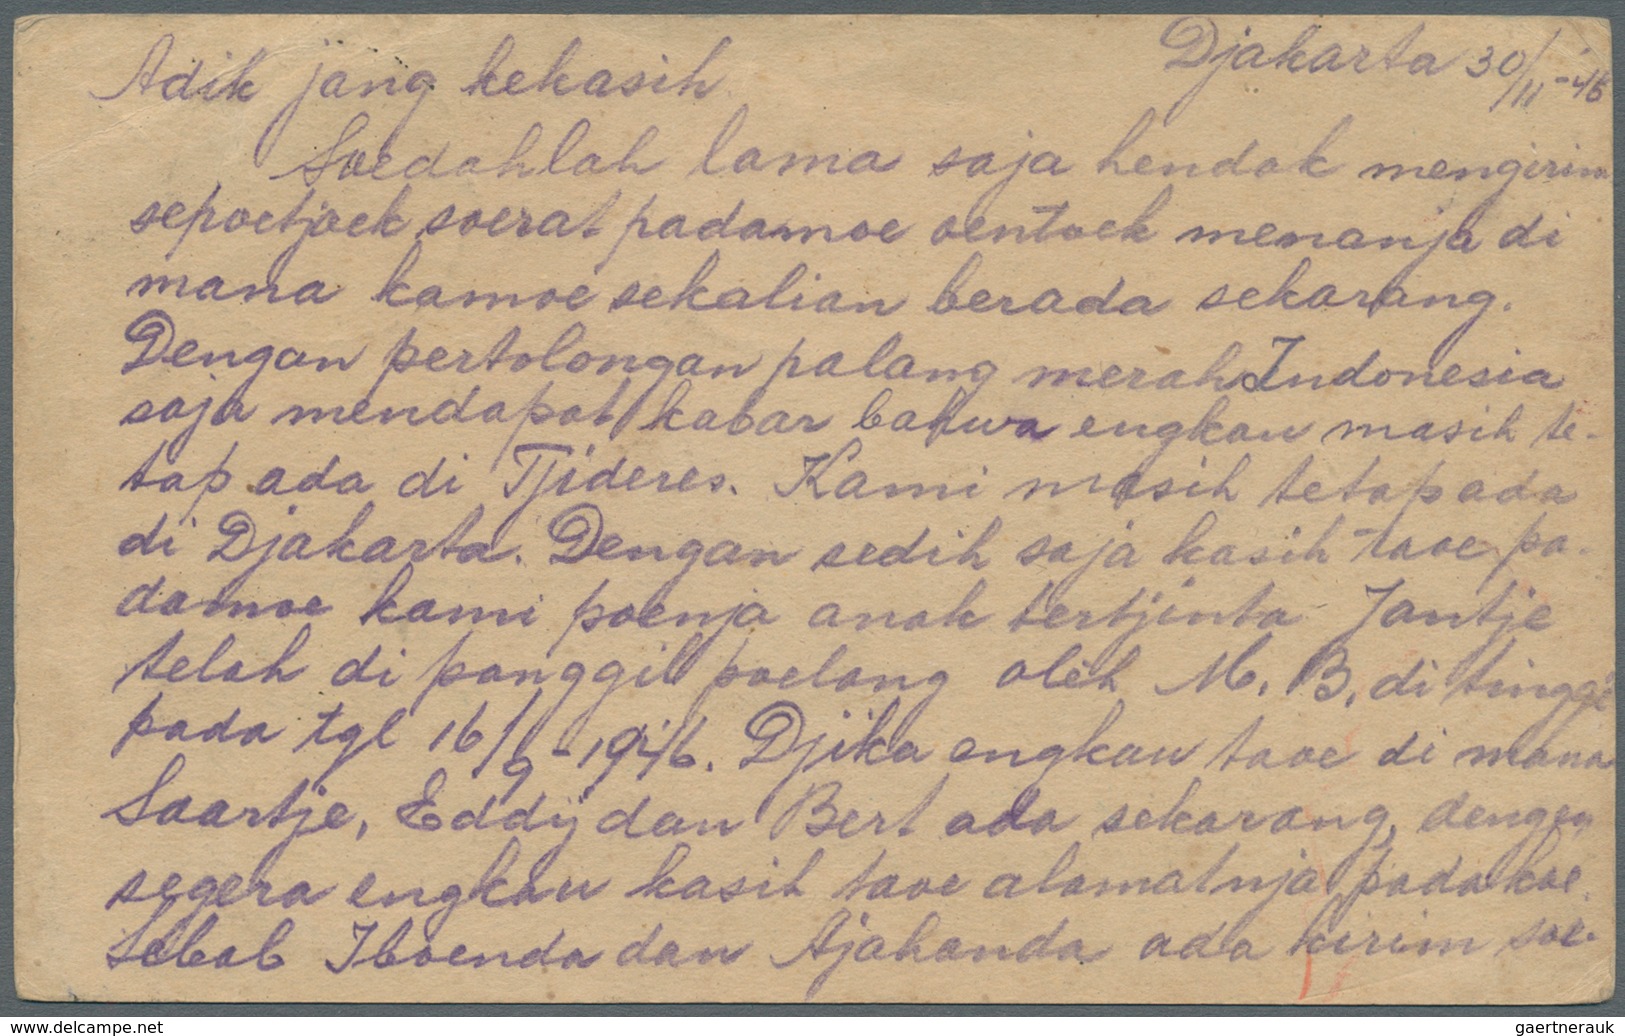 Djakarta 30/11-46
Adik jang kekasih
Soedahlah lama saja hendak mengirim
sepoetjoek soerat padamoe oentoek menanja di
mana kamoe sekalian berada sekarang.
Dengan pertolongan palang merah Indonesia
saja mendapat kabar bahwa engkau masih te-
tap ada di Tjideres. Kami masih tetap ada
di Djakarta. Dengan sedih saja kasih taoe pa-
damoe kami poenja anak tertjinta Jantje
telah di panggil poelang oleh M. B. di tinggi
pada tgl 16/9-1946. Djika engkau taoe di mana
Saartje, Eddij dan Bert ada sekarang, dengan
segera engkau kasih taoe alamatnja padakoe.
Sebab Iboenda dan Ajahanda ada kirim soe-
delcampe.com
gaertnerauk